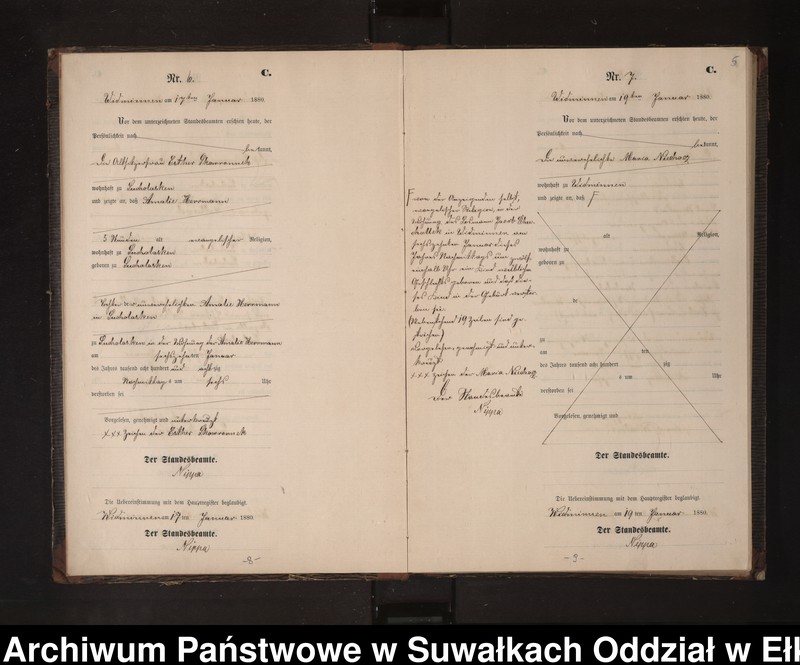 Nr. 6.
C.
Widminnen am 17ten Januar 1880.
Vor dem unterzeichneten Standesbeamten erschien heute, der
Persönlichkeit nach
bekannt,
Die Altsitzerfrau Esther
wohnhaft zu
und zeigte an, daß Amalie Herrmann
5 Stunden alt evangelischer Religion,
wohnhaft zu
geboren zu
Tochter der unverehelichten Amalie Herrmann
in
zu in der Wohnung der Amalie Herrmann
am sechszehnten Januar
des Jahres tausend acht hundert und achtzig
Nachmittags um sechs Uhr
verstorben sei
Vorgelesen, genehmigt und unterkreuzt
xxx Zeichen der Esther
Der Standesbeamte.
Nippa
Die Uebereinstimmung mit dem Hauptregister beglaubigt.
Widminnen am 17ten Januar 1880.
Der Standesbeamte.
Nippa
-8-
5
Nr. 7.
C.
Widminnen am 19ten Januar 1880.
Vor dem unterzeichneten Standesbeamten erschien heute, der
Persönlichkeit nach
bekannt,
Die unverehelichte Maria
wohnhaft zu Widminnen
und zeigte an, daß
von der Anzeigenden selbst,
evangelischer Religion, in der
Wohnung des Jacob
in Widminnen, am
sechszehnten Januar dieses
Jahres Nachmittags um
einhalb Uhr ein Kind weiblichen
Geschlechts geboren und daß die-
ses Kind in der Geburt verstor-
ben sei.
(Nebenstehend 19 Zeilen sind ge-
strichen)
Vorgelesen, genehmigt und unter-
kreuzt
xxx Zeichen der Maria
Der Standesbeamte
Nippa
alt Religion,
wohnhaft zu
geboren zu
zu
am ten
des Jahres tausend acht hundert zig
um Uhr
verstorben sei
Vorgelesen, genehmigt und
Der Standesbeamte.
Die Uebereinstimmung mit dem Hauptregister beglaubigt.
Widminnen am 19ten Januar 1880.
Der Standesbeamte.
Nippa
-9-
Archiwum Państwowe w Suwałkach Oddział w Ełk